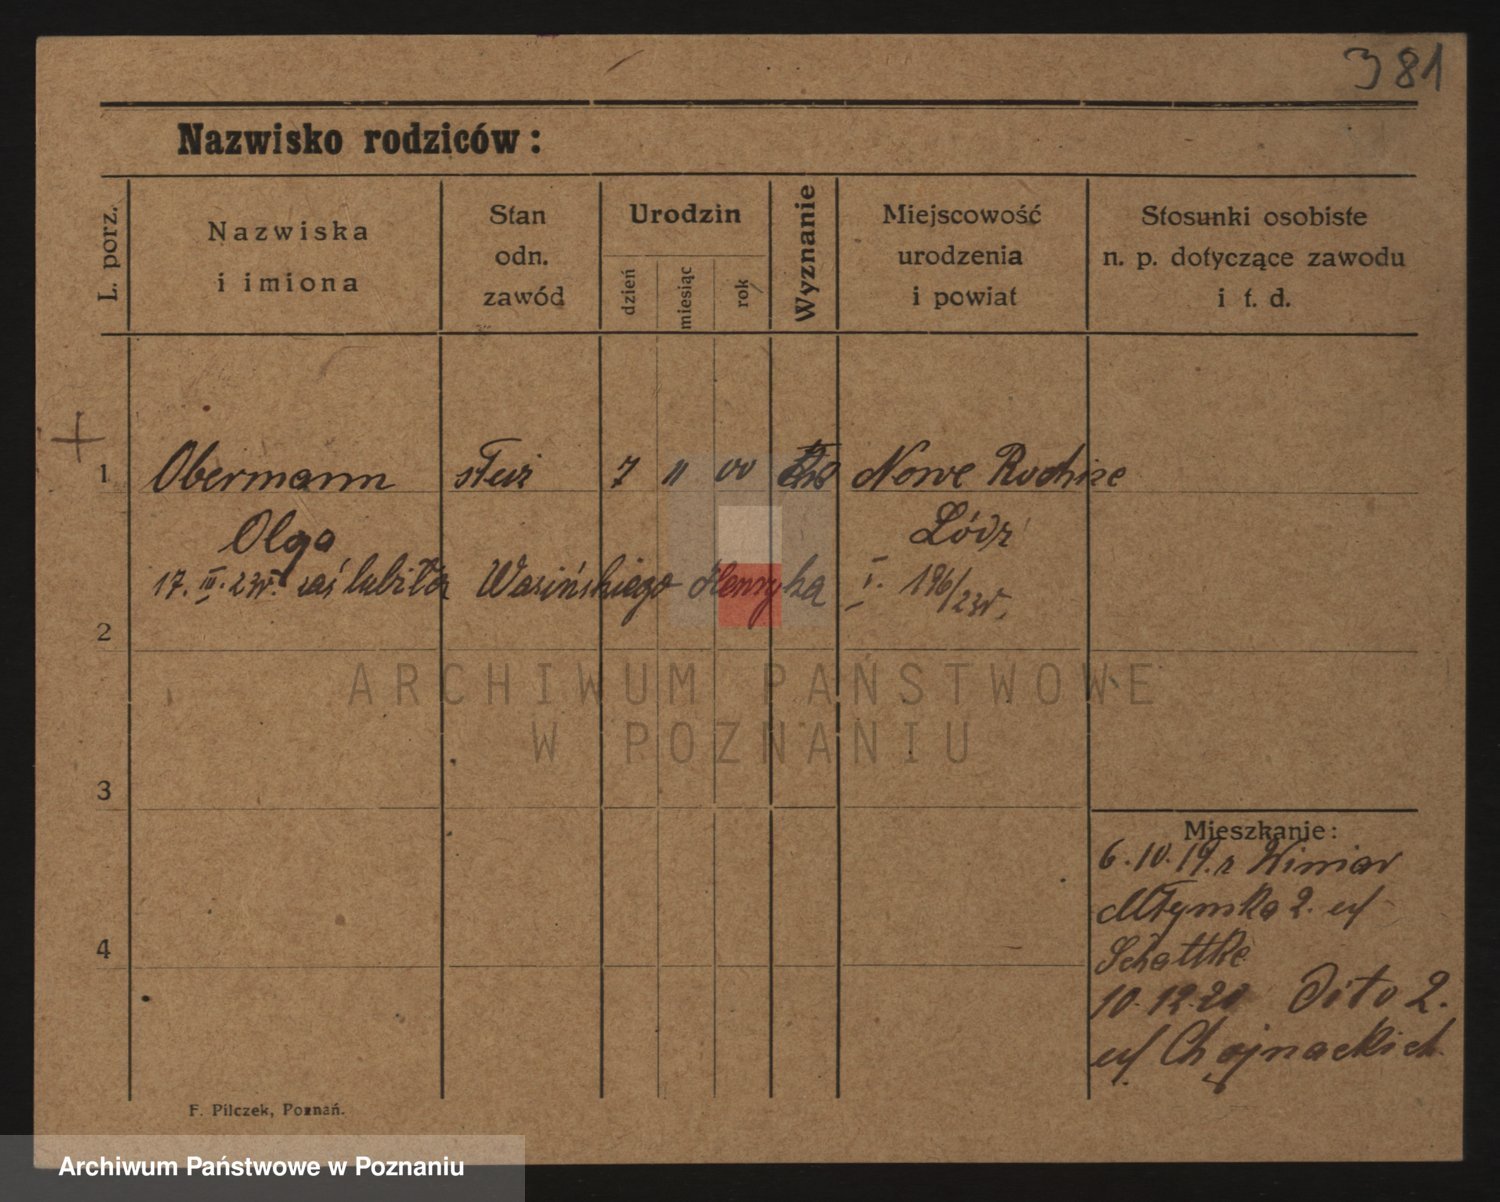 381
Nazwisko rodziców:
L. porz.
Nazwiska
i imiona
Stan
odn.
zawód
Urodzin
dzień
miesiąc
rok
Wyznanie
Miejscowość
urodzenia
i powiat
Stosunki osobiste
n. p. dotyczące zawodu
i t. d.
1 Obermann 7 11 00 Nowe
Olga Łódź
17. III. 23r. zaślubiła Wasińskiego Henryka I. 196/23r.
2
ARCHIWUM PAŃSTWOWE
W POZNANIU
3
Mieszkanie:
6.10.19.r Winiar
Młynska 2.
4
Schattke
10.12.20 Dito 2.
Chojnackich
F. Pilczek, Poznań.
Archiwum Państwowe w Poznaniu